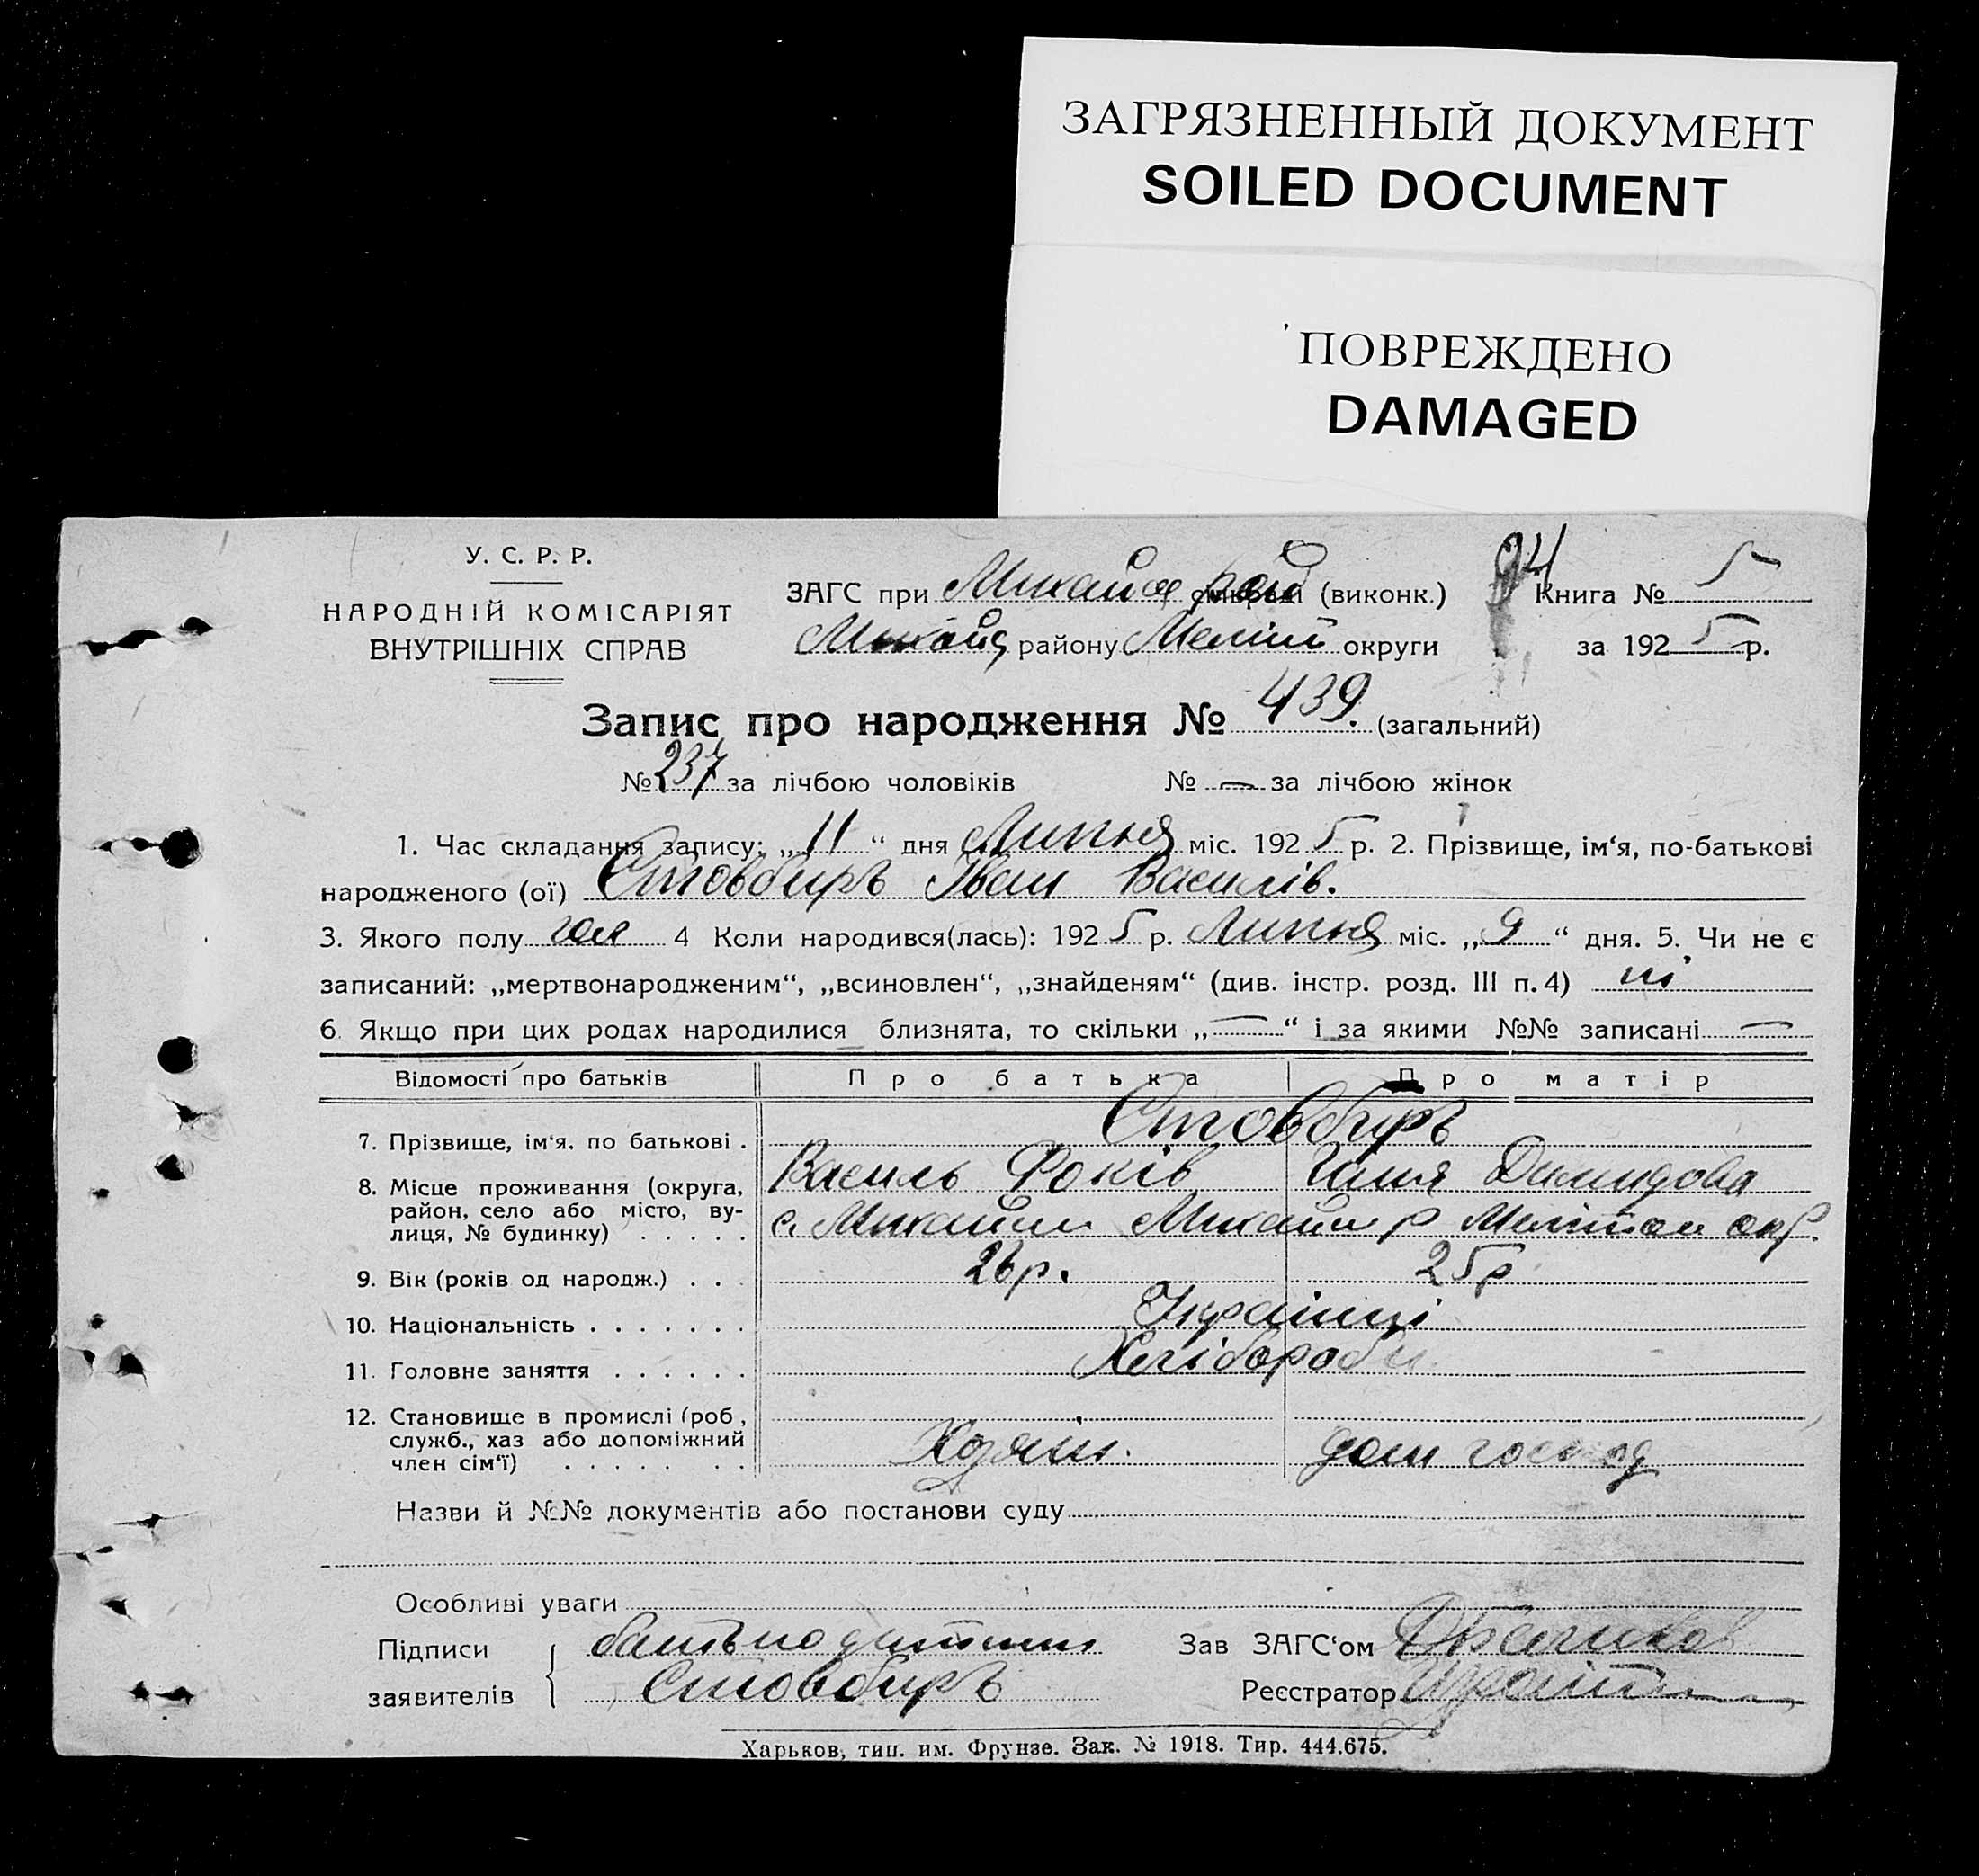 ЗАГРЯЗНЕННЫЙ ДОКУМЕНТ
SOILED DOCUMENT
ПОВРЕЖДЕНО
DAMAGED
У. С. Р. Р.
НАРОДНІЙ КОМІСАРІЯТ
ВНУТРІШНІХ СПРАВ
ЗАГС при Михайл рай сільраді (виконк.)
Михайл району Меліт округи
24
Книга № 5
за 1925 р.
Запис про народження № 439. (загальний)
№ 237 за лічбою чоловіків № — за лічбою жінок
1. Час складання запису: „11“ дня Липня міс. 1925 р. 2. Прізвище, ім‘я, по-батькові
народженого (ої) Стовбиръ Іван Василів.
3. Якого полу чол 4 Коли народився(лась): 1925 р. Липня міс. „9“ дня. 5. Чи не є
записаний: „мертвонародженим“, „всиновлен“, „знайденям“ (див. інстр. розд. III п. 4) ні
6. Якщо при цих родах народилися близнята, то скільки „—“ і за якими №№ записані —
Відомості про батьків Про батька Про матір
7. Прізвище, ім‘я, по батькові . Стовбиръ
Василь Фоків Ганя Демидова
8. Місце проживання (округа,
район, село або місто, ву-
лиця, № будинку) . . . . . с. Михайли Михайл р Мелітоп окр.
9. Вік (років од народж.) . . . 26 р. 25 р
10. Національність . . . . . . . Українці
11. Головне заняття . . . . . . Хлібороби
12. Становище в промислі (роб,
служб., хаз або допоміжний
член сім‘ї) . . . . . . . Хозяїн. дом господ
Назви й №№ документів або постанови суду
Особливі уваги
Підписи заявителів батько дитини
Стовбиръ
Зав ЗАГС‘ом
Реєстратор
Харьков, тип. им. Фрунзе. Зак. № 1918. Тир. 444.675.